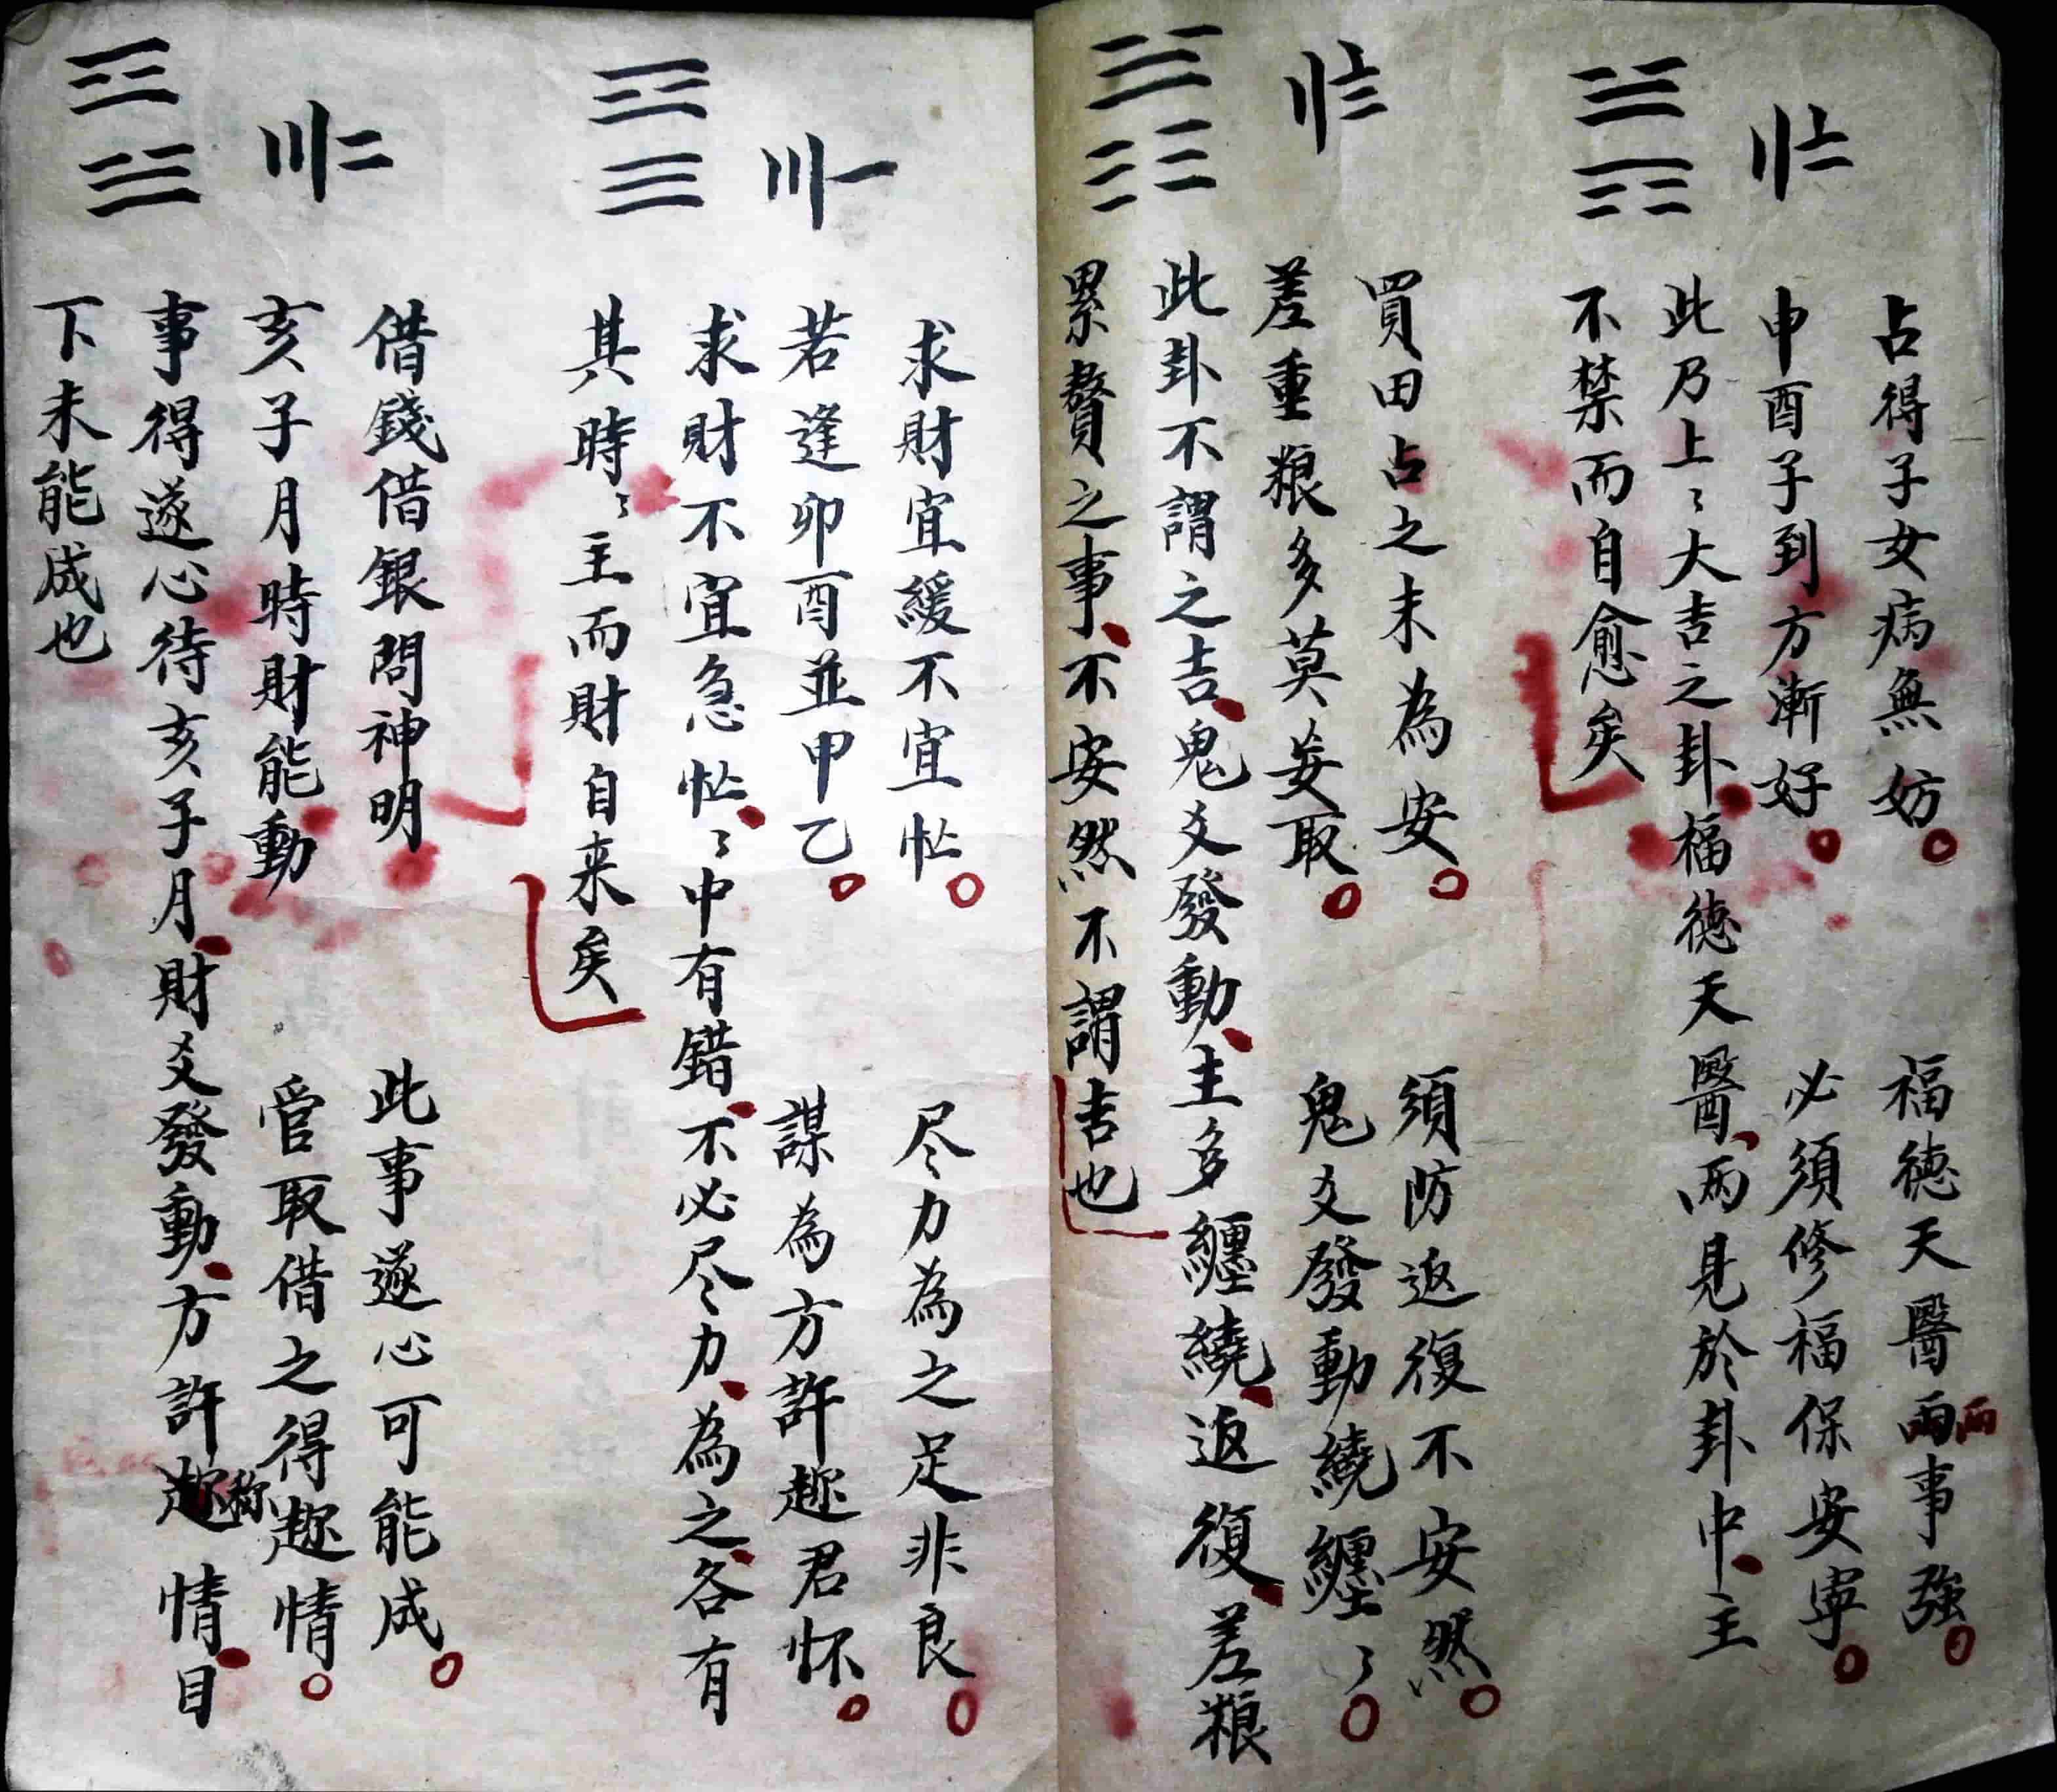 占得子女病無妨。 福徳天醫兩兩事強。
申酉子到方漸好。 必須修福保安寧。
此乃上〻大吉之卦、福徳天醫、兩見於卦中、主
不禁而自愈矣
買田占之未為安。 須防返復不安然。
差重粮多莫妄取。 鬼爻發動繞纏〻。
此卦不謂之吉、鬼爻發動、主多纏繞、返復、差粮
累贅之事、不安然不謂吉也
求財宜緩不宜忙。 尽力為之足非良。
若逢卯酉並甲乙。 謀為方許趂君怀。
求財不宜急忙、〻中有錯、不必尽力、為之、各有
其時〻主而財自来矣
借錢借銀問神明 此事遂心可能成。
亥子月時財能動 管取借之得趂情。
事得遂心待亥子月、財爻發動、方許趂称情、目
下未能成也